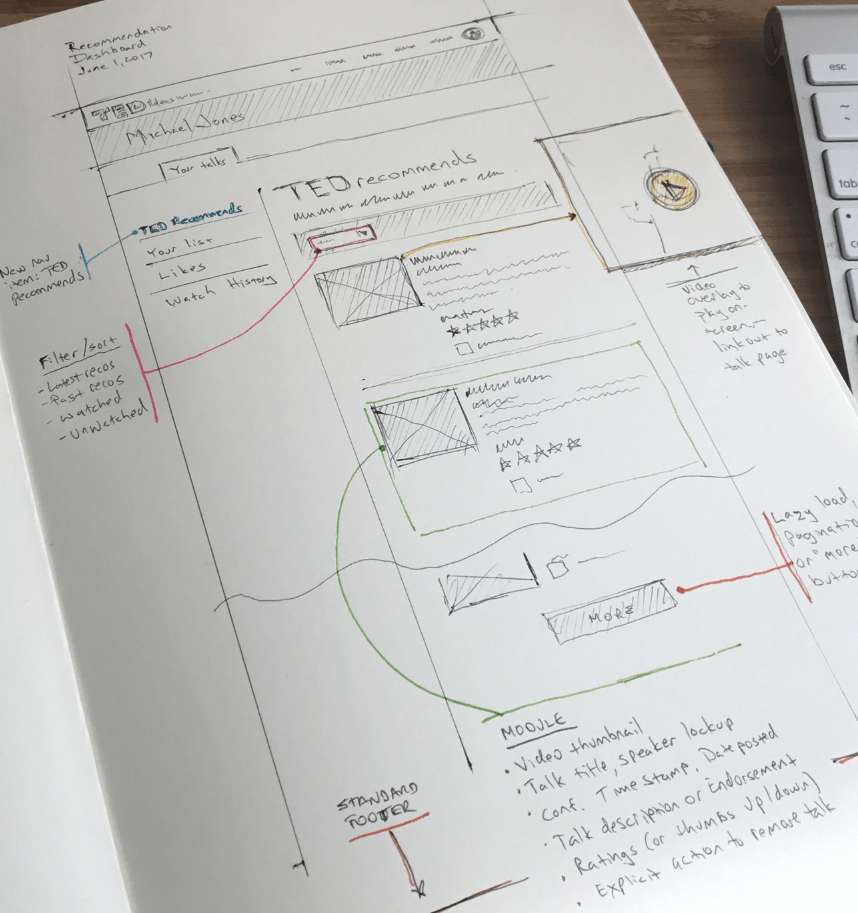 Recommendation
Dashboard
June 1, 2017
TED Ideas
Michael Jones
Your talks
TED recommends
TED Recommends
Your list
Likes
Watch History
New nav
item: TED
Recommends
Filter/sort
- Latest recos
- Past recos
- Watched
- Unwatched
Video
overlay to
play on-
screen -
link out to
talk page
Lazy load,
pagination
or "more"
button
MORE
MODULE
• Video thumbnail
• Talk title, speaker lockup
• Conf. Time Stamp. Date posted
• Talk description or Endorsement
• Ratings (or thumbs up/down)
• Explicit action to remove talk
STANDARD
FOOTER
esc
~
tab